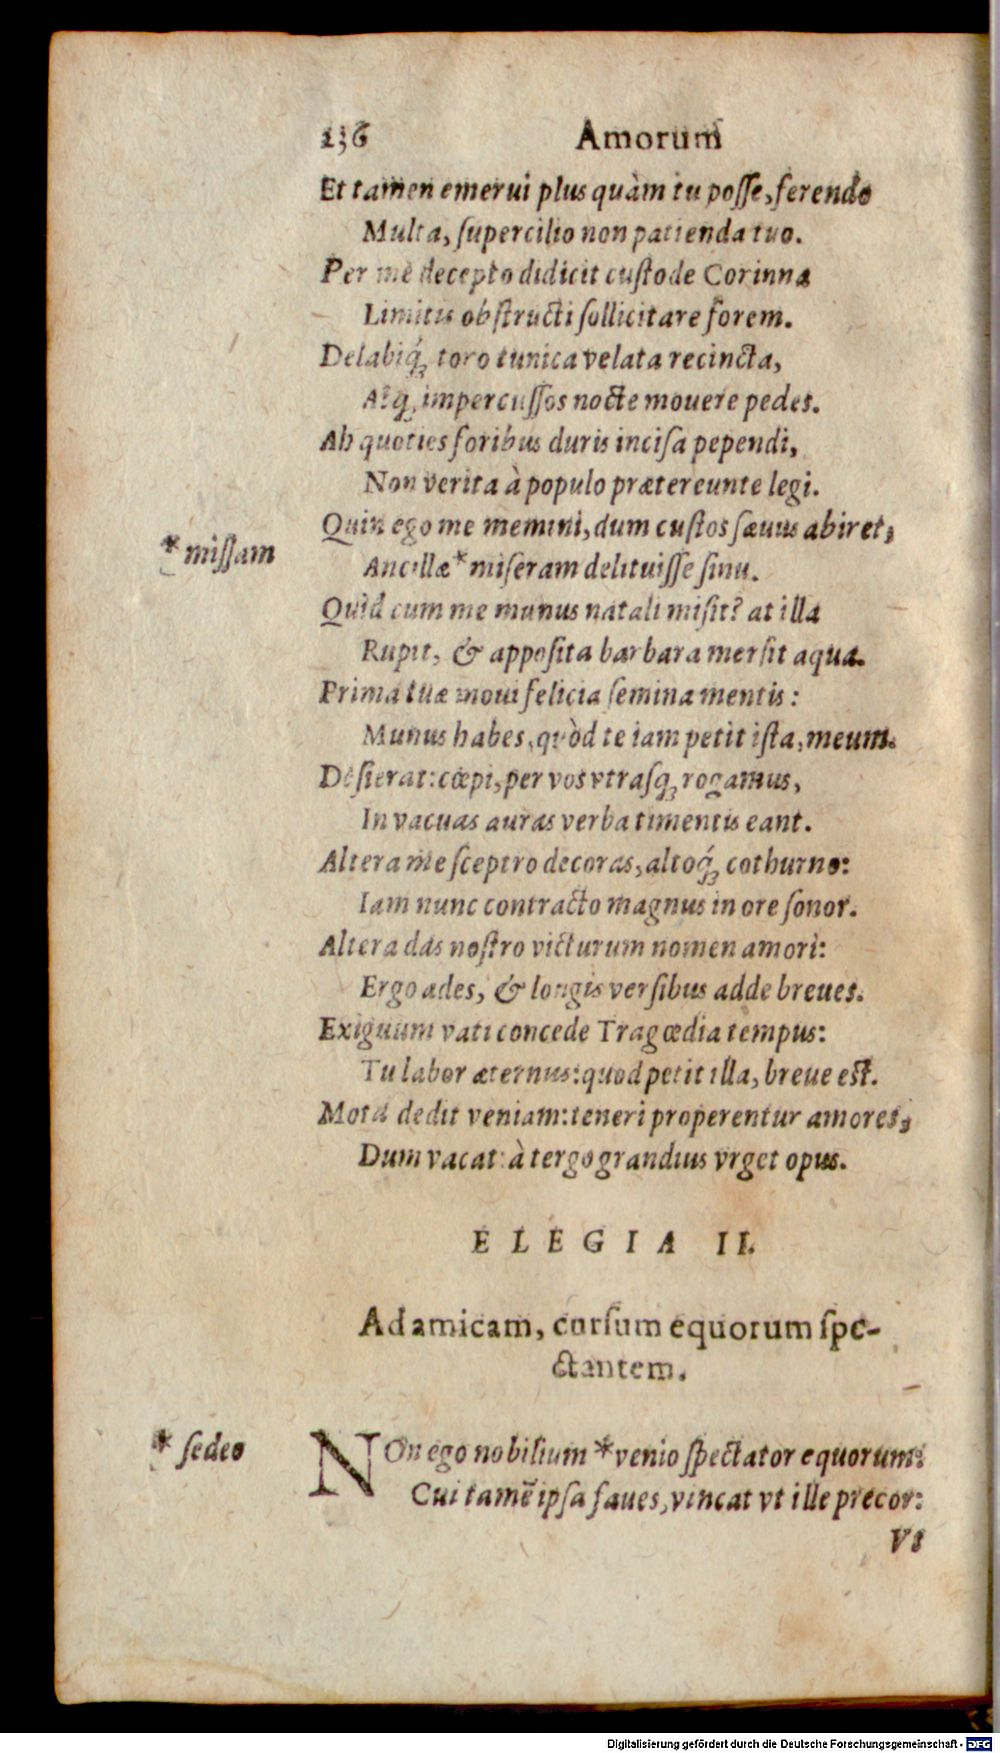 136 Amorum
Et tamen emerui plus quàm tu poſſe, ferendo
Multa, ſupercilio non patienda tuo.
Per me decepto didicit cuſtode Corinna
Limitis obſtructi ſollicitare forem.
Delabiq́ꝫ toro tunica velata recincta,
Atqꝫ impercuſſos nocte mouere pedes.
Ah quoties foribus duris inciſa pependi,
Non verita à populo prætereunte legi.
Quin ego me memini, dum cuſtos ſæuus abiret,
* miſſam
Ancillæ * miſeram delituiſſe ſinu.
Quid cum me munus natali miſit? at illa
Rupit, & appoſita barbara merſit aqua.
Prima tuæ moui felicia ſemina mentis:
Munus habes, quòd te iam petit iſta, meum.
Deſierat: cœpi, per vos vtraſqꝫ rogamus,
In vacuas auras verba timentis eant.
Altera me ſceptro decoras, altoq́ꝫ cothurno:
Iam nunc contracto magnus in ore ſonor.
Altera das noſtro victurum nomen amori:
Ergo ades, & longis verſibus adde breues.
Exiguum vati concede Tragœdia tempus:
Tu labor æternus: quod petit illa, breue eſt.
Mota dedit veniam: teneri properentur amores,
Dum vacat: à tergo grandius vrget opus.
ELEGIA II.
Ad amicam, curſum equorum ſpe-
ctantem.
* ſedeo
NOn ego nobilium * venio ſpectator equorum:
Cui tamẽ ipſa faues, vincat vt ille precor:
Vt
Digitalisierung gefördert durch die Deutsche Forschungsgemeinschaft - DFG